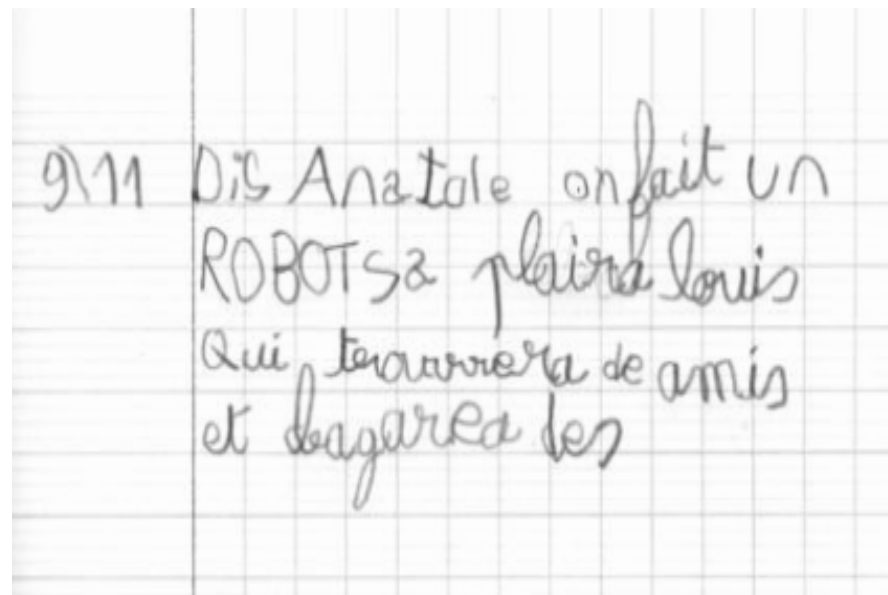 9\11 Dis Anatole on fait un
ROBOT sa plaira louis
Qui trouvera de amis
et bagarea les